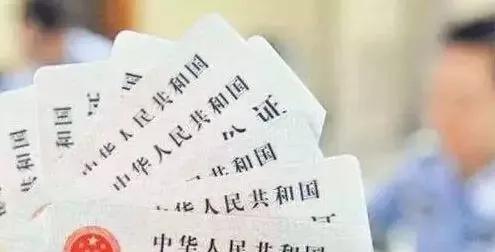 证
国
中华人民共和国
中华人民共和国
证
中华人民共和国
华人民共和国
中华人民共和国